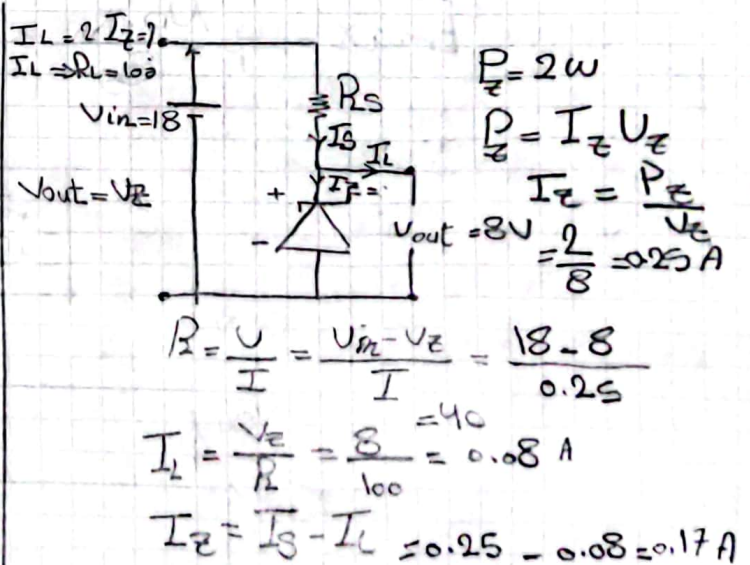 IL = ? Iz = ?
IL ⇒ RL = 100
Vin = 18
Vout = VZ
RS
IS
IL
Iz =
+
-
Vout = 8V
Pz = 2W
Pz = Iz Uz
Iz = Pz / Vz
= 2 / 8 = 0.25 A
R = U / I = Vin - Vz / I = 18 - 8 / 0.25
= 40
IL = Vz / R = 8 / 100 = 0.08 A
Iz = IS - IL = 0.25 - 0.08 = 0.17 A